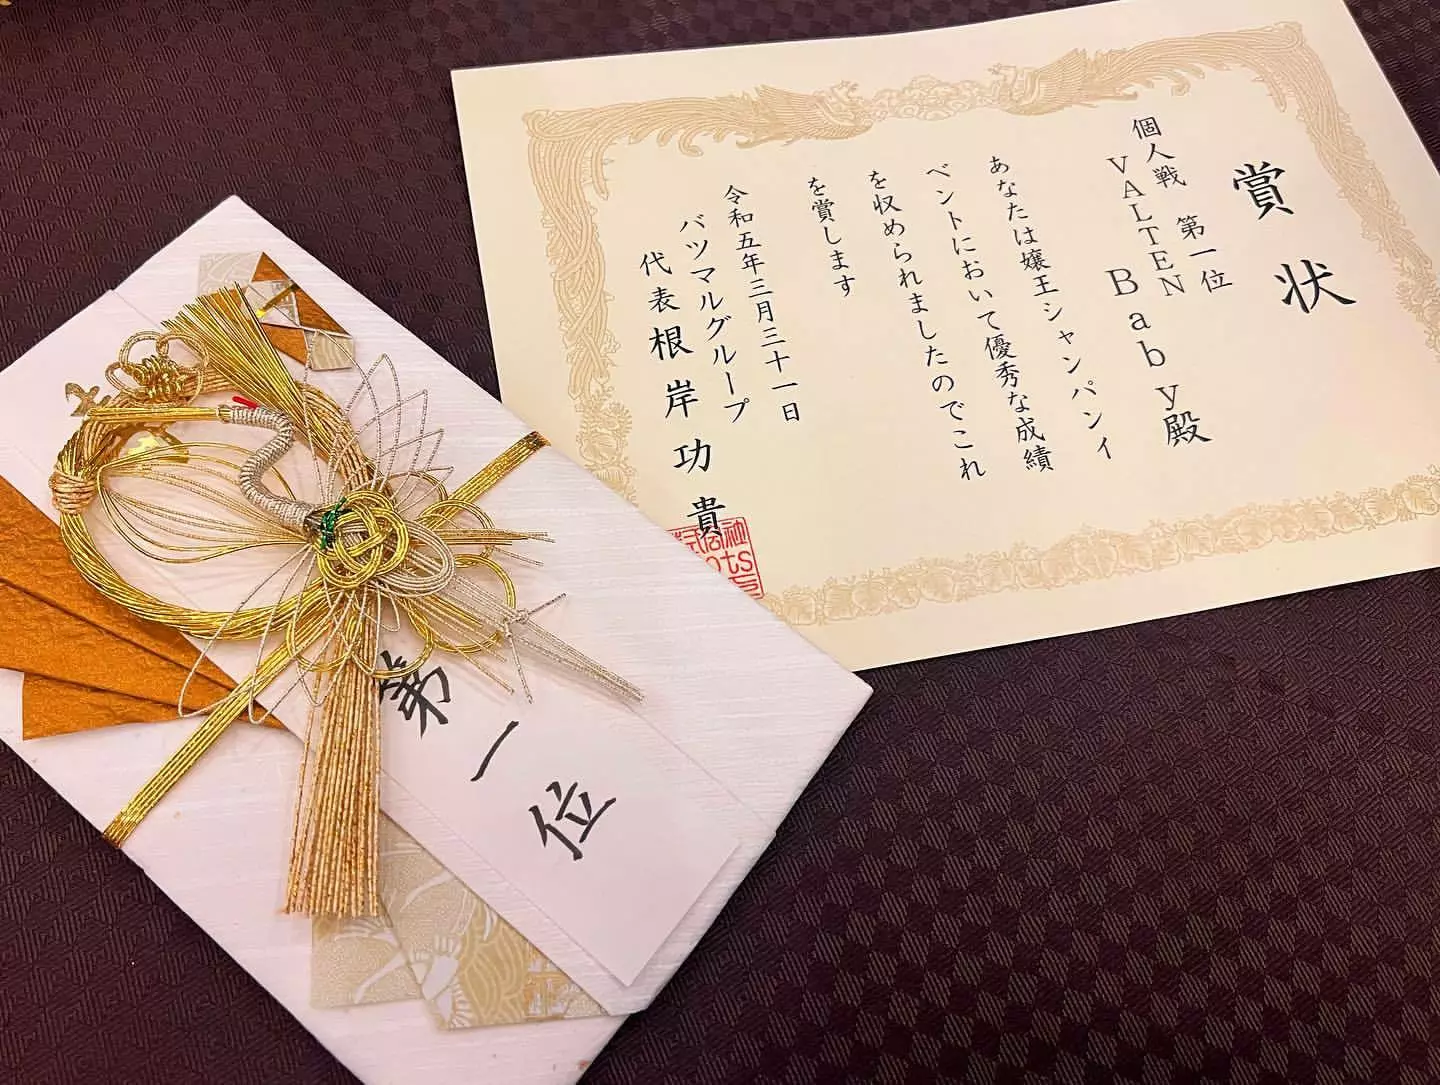 賞状
個人戦 第一位
VALTEN Baby殿
あなたは嬢王シャンパンイ
ベントにおいて優秀な成績
を収められましたのでこれ
を賞します
令和五年三月三十一日
バツマルグループ
代表 根岸功貴
第一位